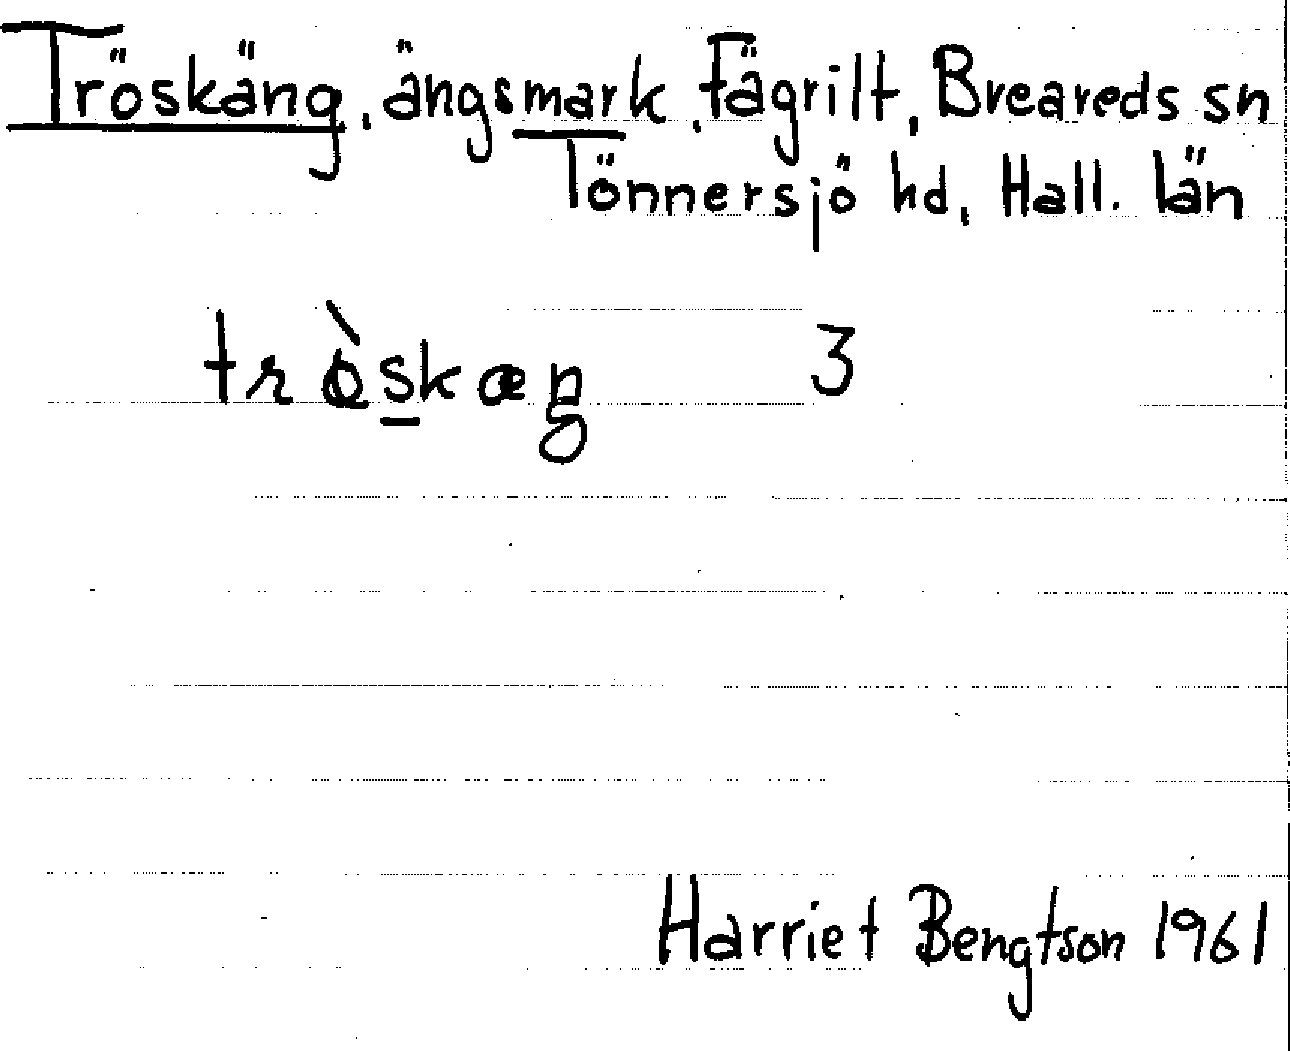 Tröskäng, ängsmark, Fägrilt, Breareds sn
Tönnersjö hd, Hall. län
trø̀skæŋ 3
Harriet Bengtson 1961